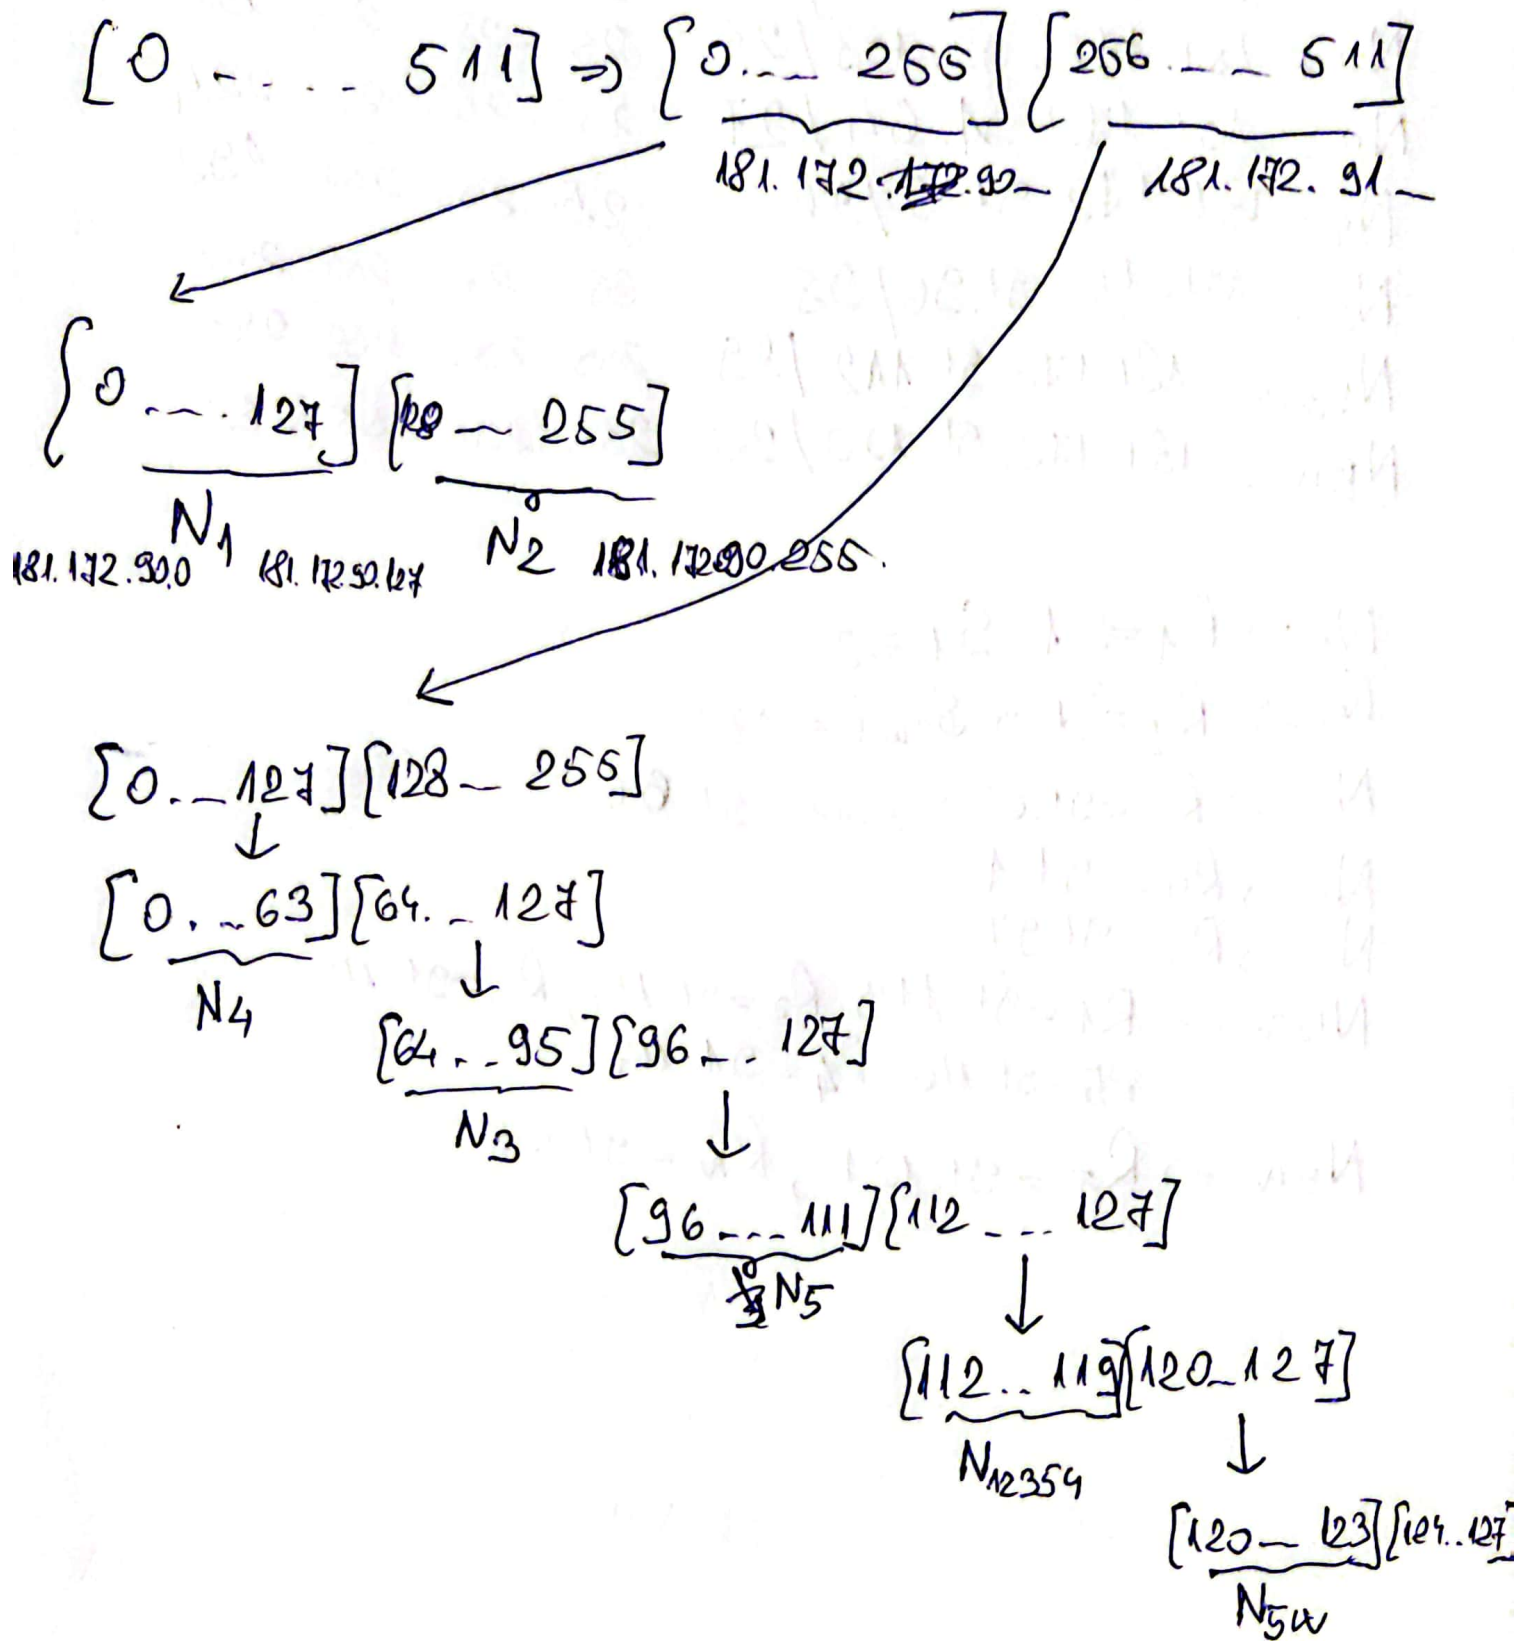 [0 - . . . - 511] => [0.-- 255] [256.-- 511]
181.172.90- 181.172.91-
[0 .-- . 127] [128 -- 255]
N1 N2
181.172.90.0 181.172.90.127 181.172.90.255.
[0.-127] [128- 255]
[0. -63] [64. - 127]
N4
[64. .-95] [96-. 127]
N3
[96 --- 111] [112 - -- 127]
N5
[112.. 119] [120-127]
N12354
[120- 123] [124..127]
N5W